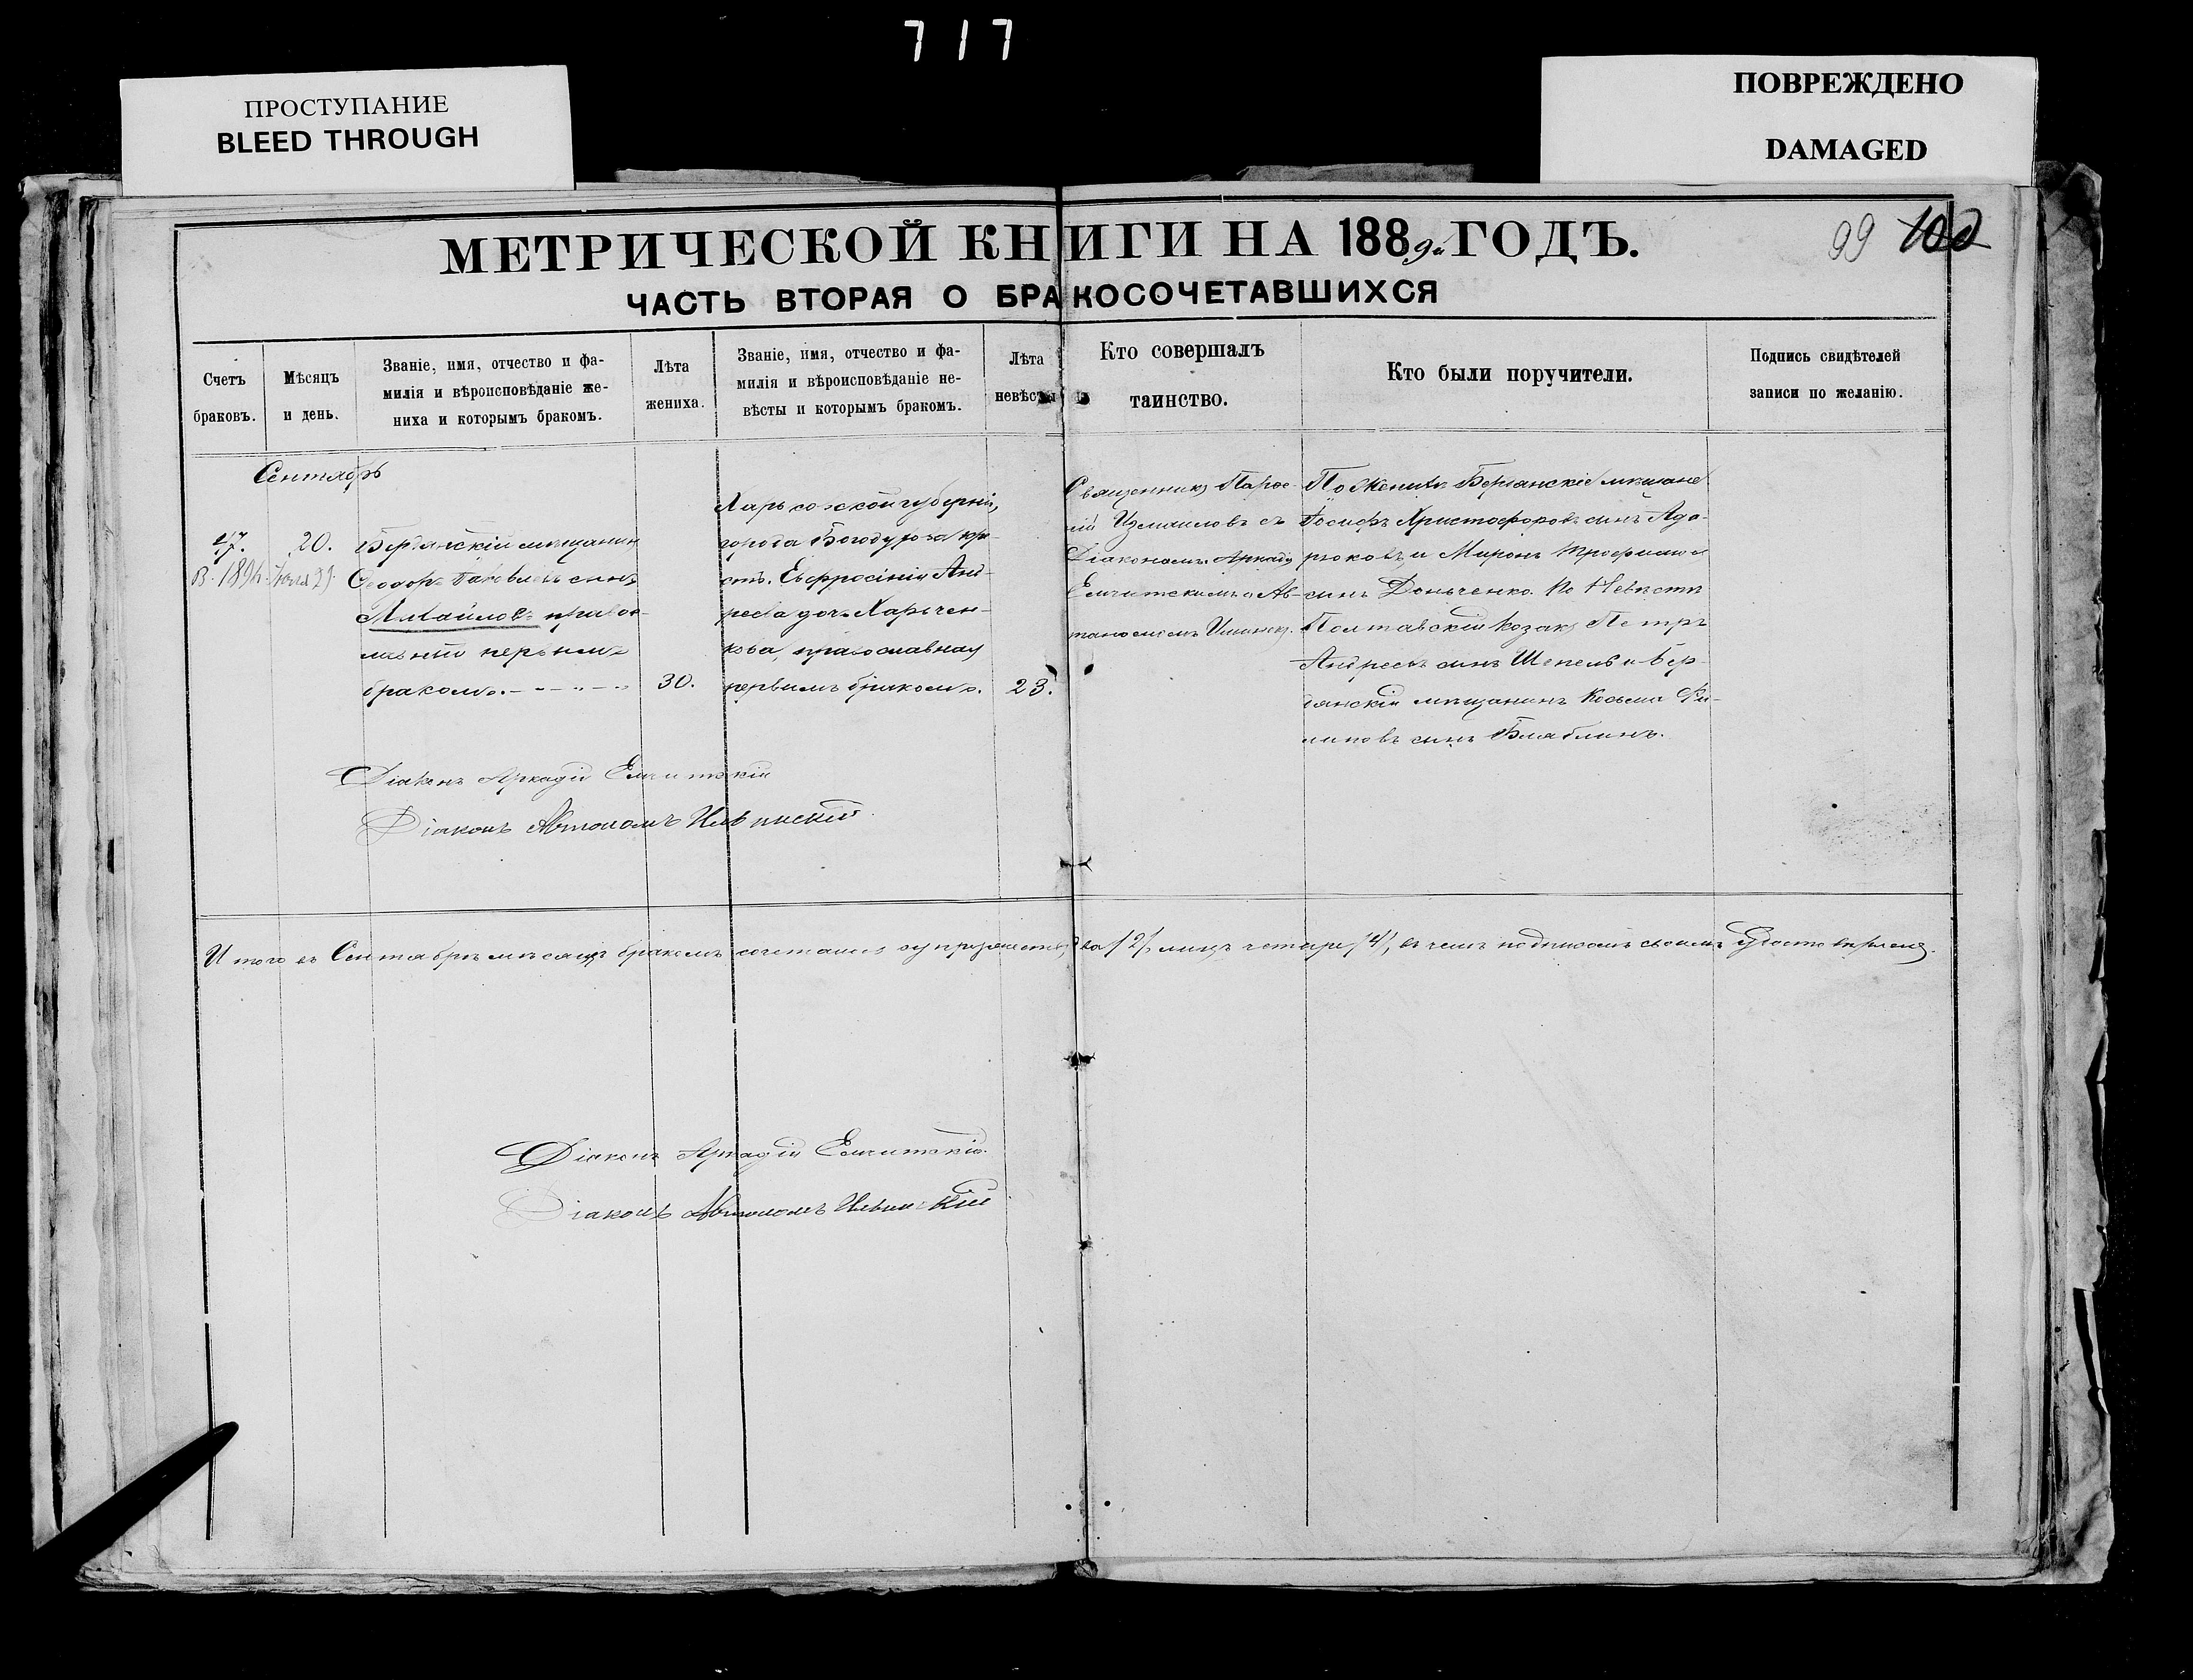 717
ПРОСТУПАНИЕ
BLEED THROUGH
ПОВРЕЖДЕНО
DAMAGED
МЕТРИЧЕСКОЙ КНИГИ НА 1889й ГОДЪ.
99 100
ЧАСТЬ ВТОРАЯ О БРАКОСОЧЕТАВШИХСЯ
Счетъ
браковъ.
Мѣсяцъ
и день.
Званіе, имя, отчество и фа-
милія и вѣроисповѣданіе же-
ниха и которымъ бракомъ.
Лѣта
жениха.
Званіе, имя, отчество и фа-
милія и вѣроисповѣданіе не-
вѣсты и которымъ бракомъ.
Лѣта
невѣсты
Кто совершалъ
таинство.
Кто были поручители.
Подпись свидѣтелей
записи по желанію.
Сентябрь
20.
В. 1894.
Бердянскій мѣщанинъ
Ѳеодоръ сынъ
Михайловъ правос-
лавный первымъ
бракомъ.
30.
Харьковской губерніи,
города Богодухова кре-
ст. Евфросинія Анд-
реева дочь Харьчен-
кова, православная
первымъ бракомъ.
23.
Священникъ
Измаиловъ съ
Діакономъ Аркадіе
Емчитскимъ и Ав-
тономомъ
По Женихѣ Бердянскіе мѣщане
Іосифъ Христофоровъ сынъ
и Миронъ Трофимовъ
сынъ Доньченко. По Невѣстѣ
Полтавскій козакъ Петръ
Андреевъ сынъ Шепель и Бер-
дянскій мѣщанинъ Косьма Фи-
липовъ сынъ
Діаконъ Аркадій Емчитскій
Діаконъ Автономъ Ильинскій
Итого въ Сентябрѣ мѣсяцѣ бракомъ сочетались супружествъ два /2/ лицъ четыре /4/, въ чемъ подписомъ своимъ удостовѣряемъ.
Діаконъ Аркадій Емчитскій.
Діаконъ Автономъ Ильинскій